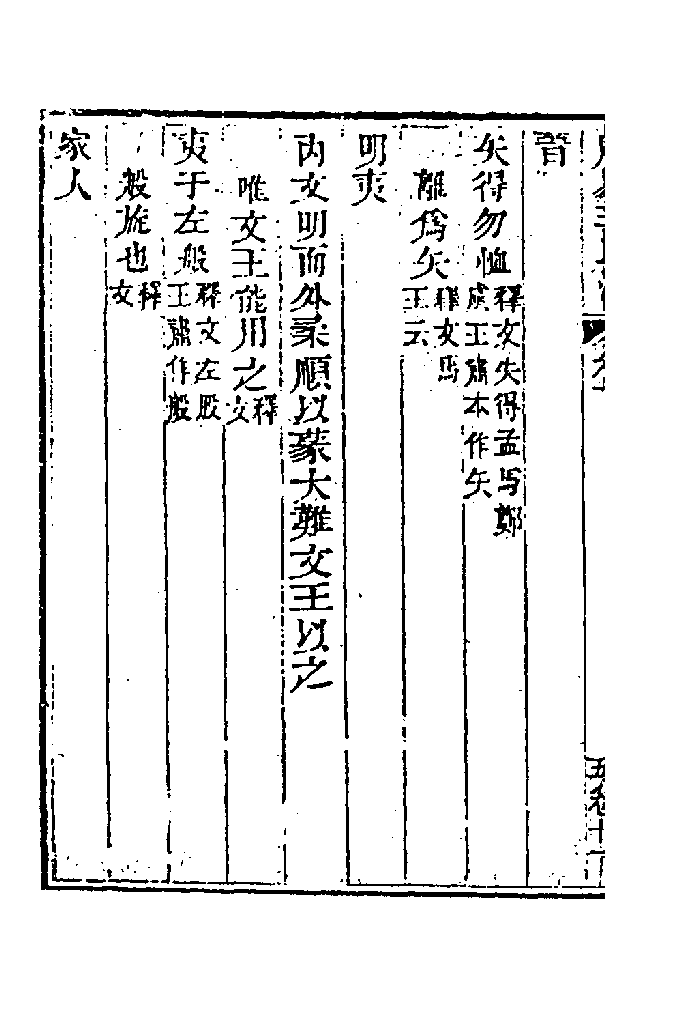 晉
矢得勿恤釋文失得孟馬鄭虞王肅本作矢
離爲矢釋文馬王云
明夷
內文明而外柔順以蒙大難文王以之
唯文王能用之釋文
夷于左般釋文左股王肅作般
般旋也釋文
家人